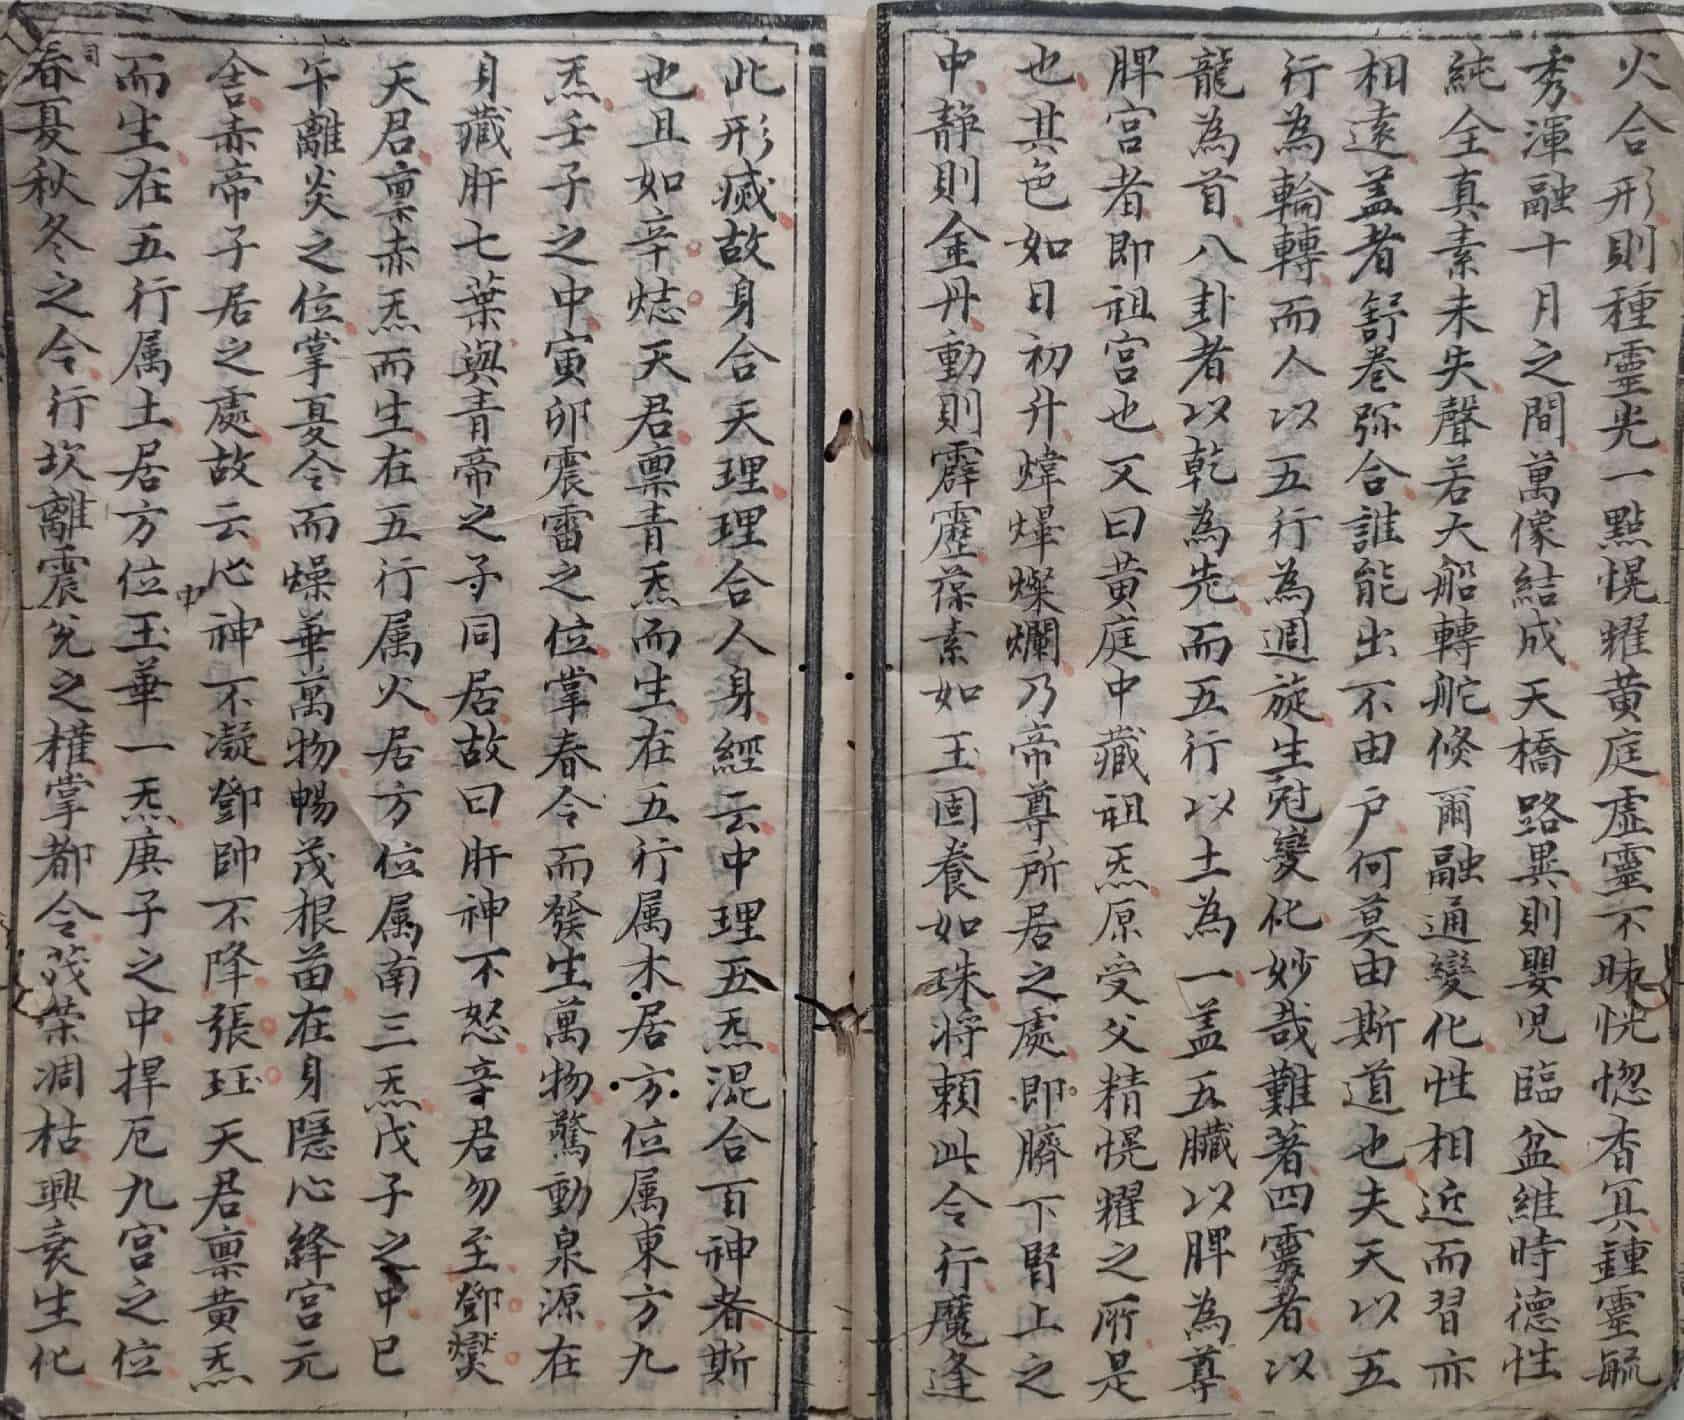 火合形則種靈光一點幌耀黃庭虛靈不昧恍惚杳冥鍾靈毓
秀渾融十月之間萬像結成天橋路異則嬰児臨盆維時德性
純全真素未失聲若大船轉舵倐爾融通變化性相近而習亦
相遠盖者舒卷弥合誰能出不由户何莫由斯道也夫天以五
行為輪轉而人以五行為週旋生尅變化妙哉難著四霛者以
龍為首八卦者以乾為先而五行以土為一盖五臟以脾為尊
脾宫者即祖宫也又曰黃庭中藏祖炁原受父精幌耀之所是
也其色如日初升煒燁燦爛乃帝尊所居之處即臍下腎上之
中静則金丹動則霹靂葆素如玉固養如珠将賴此令行魔逢
此形㓕故身合天理理合人身經云中理五炁混合百神者斯
也且如辛㷓天君禀青炁而生在五行属木居方位属東方九
炁壬子之中寅卯震雷之位掌春令而發生萬物驚動泉源在
身藏肝七葉與青帝之子同居故曰肝神不怒辛君勿至鄧燮
天君禀赤炁而生在五行属火居方位属南三炁戊子之中巳
午離炎之位掌夏令而燥華萬物暢茂根苗在身隱心絳宫元
舍赤帝子居之處故云心神不凝鄧帥不降張珏天君禀黃炁
中
而生在五行属土居方位玉華一炁庚子之中捍厄九宫之位
司
春夏秋冬之令行坎離震兊之權掌都令茂荣凋枯興衰生化